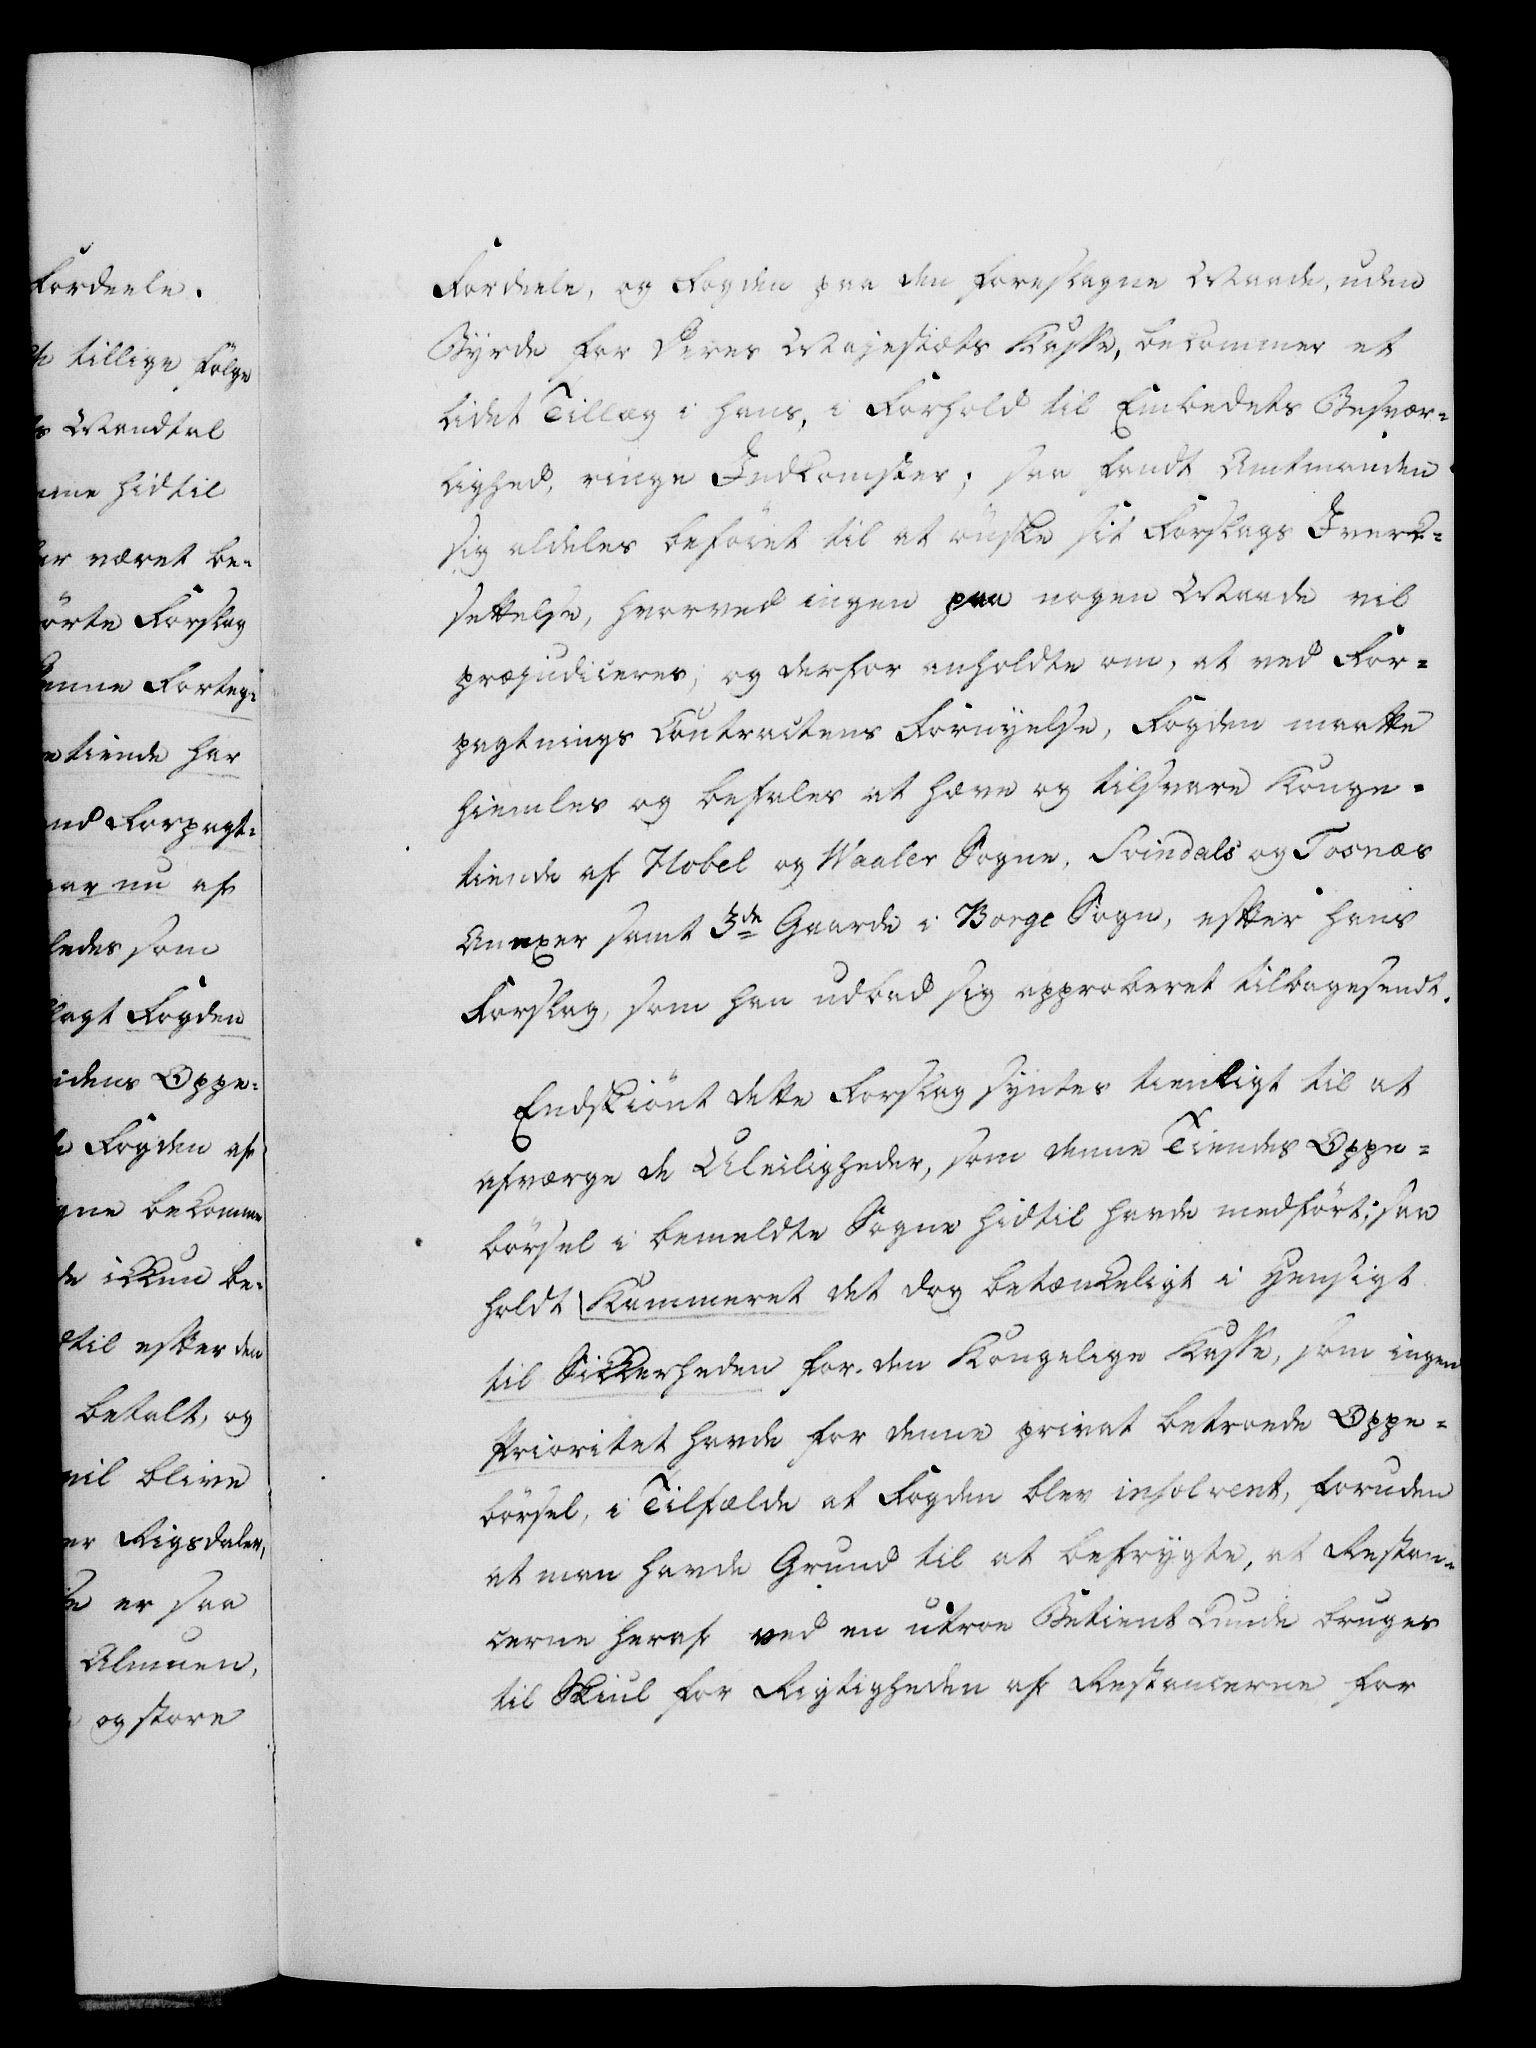 Fordeele.
tillige følge
Mandtal
hidtil
været be-
Forslag
Forteg-
tiende har
Forpagt-
nu af
ledes som
lagt Fogden
Oppe-
Fogden af
bekomme
ikkun be-
til efter den
betalt, og
vil blive
Rigsdaler,
er saa
Almuen,
og store
Fordeele, og Fogden paa den foreslagne Maade, uden
Byrde for Deres Majestæts Kasse, bekommer et
lidet Tillæg i hans, i Forhold til Embedets Besvær-
lighed, ringe Indkomster; saa fandt Amtmanden
sig aldeles beføiet til at ønske sit Forslags Iverk-
settelse, hvorved ingen paa nogen Maade vil
præjudiceres, og derfor anholdte om, at ved For-
pagtnings Contractens Fornyelse, Fogden maatte
hiemles og befales at hæve og tilsvare Konge-
tiende af Hobel og Waaler Sogne, Svindals og Tosnæs
Annexer samt 3de Gaarde i Borge Sogn, efter hans
Forslag, som han udbad sig approberet tilbagesendt.
Endskiönt dette Forslag syntes tienligt til at
afværge de Uleiligheder, som denne Tiendes Oppe-
börsel i bemeldte Sogne hidtil havde medført; saa
holdt Kammeret det dog betænkeligt i Hensigt
til Sikkerheden for den Kongelige Kasse, som ingen
Prioritet havde for denne privat betroede Oppe-
börsel, i Tilfælde at Fogden blev insolvent, foruden
at man havde Grund til at befrygte, at Restan-
cerne heraf ved en utroe Betient kunde bruges
til Skiul for Rigtigheden af Restancerne for